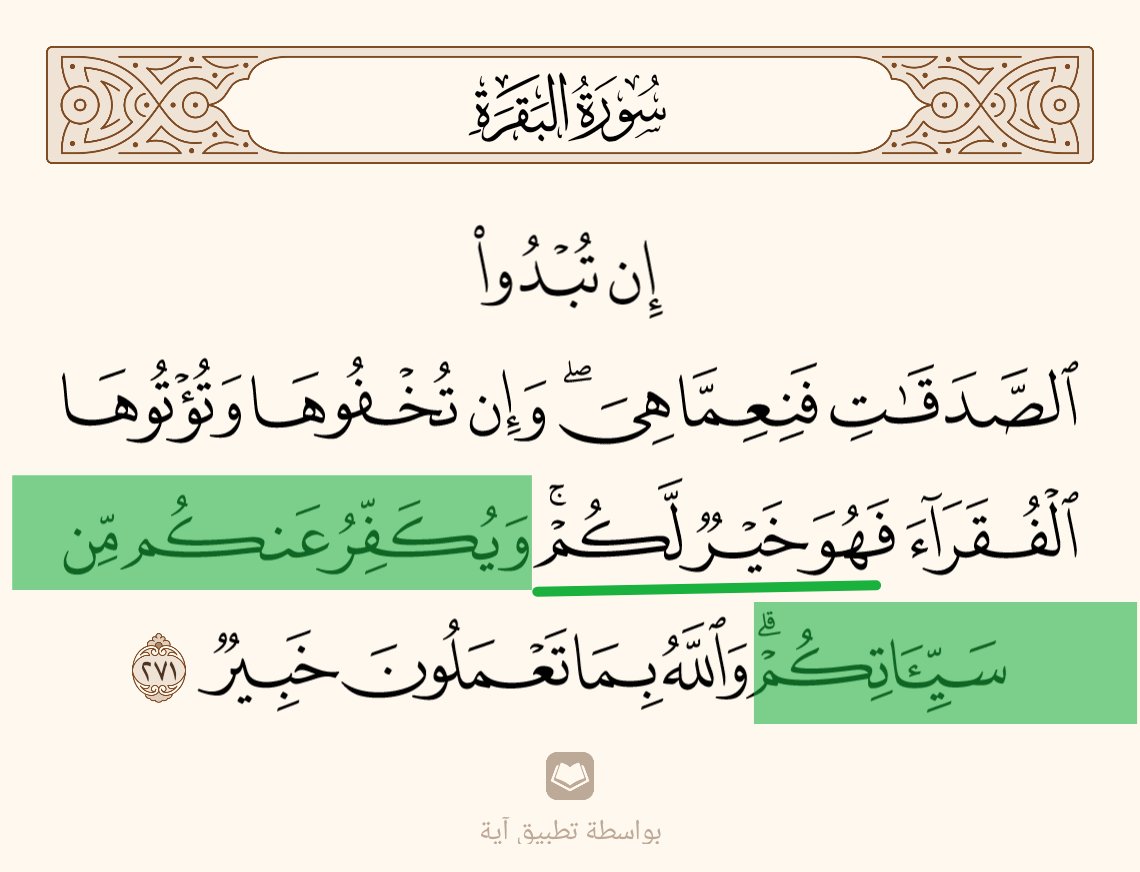 سُورَةُ البَقَرَةِ
إِن تُبۡدُواْ
ٱلصَّدَقَٰتِ فَنِعِمَّا هِيَۖ وَإِن تُخۡفُوهَا وَتُؤۡتُوهَا
ٱلۡفُقَرَآءَ فَهُوَ خَيۡرٞ لَّكُمۡۚ وَيُكَفِّرُ عَنكُم مِّن
سَيِّـَٔاتِكُمۡۗ وَٱللَّهُ بِمَا تَعۡمَلُونَ خَبِيرٞ ٢٧١
بواسطة تطبيق آية